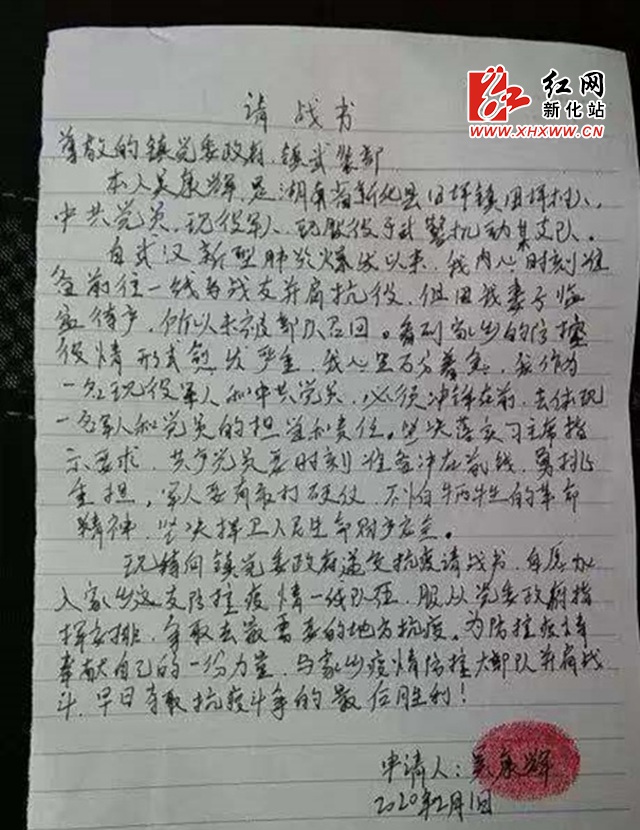 红网
新化站
WWW.XHXWW.CN
请战书
尊敬的镇党委政府、镇武装部
本人吴康辉,是湖南省新化县田坪镇田坪村人,
中共党员,现役军人,现服役于武警机动某支队。
自武汉新型肺炎爆发以来,我内心时刻准
备前往一线与战友并肩抗疫,但因我妻子临
盆待产,所以未被部队召回。看到家乡的防控
疫情形式愈发严重,我心里万分着急,我作为
一名现役军人和中共党员,必须冲锋在前,去体现
一名军人和党员的担当和责任。坚决落实习主席指
示要求,共产党员要时刻准备冲在前线,勇挑
重担,军人要有敢打硬仗,不怕牺牲的革命
精神,坚决捍卫人民生命财产安全。
现特向镇党委政府递交抗疫请战书,自愿加
入家乡这支防控疫情一线队伍,服从党委政府指
挥安排,争取去最需要的地方抗疫。为防控疫情
奉献自己的一份力量,与家乡疫情防控大部队并肩战
斗,早日夺取抗疫斗争的最后胜利!
申请人:吴康辉
2020年2月1日